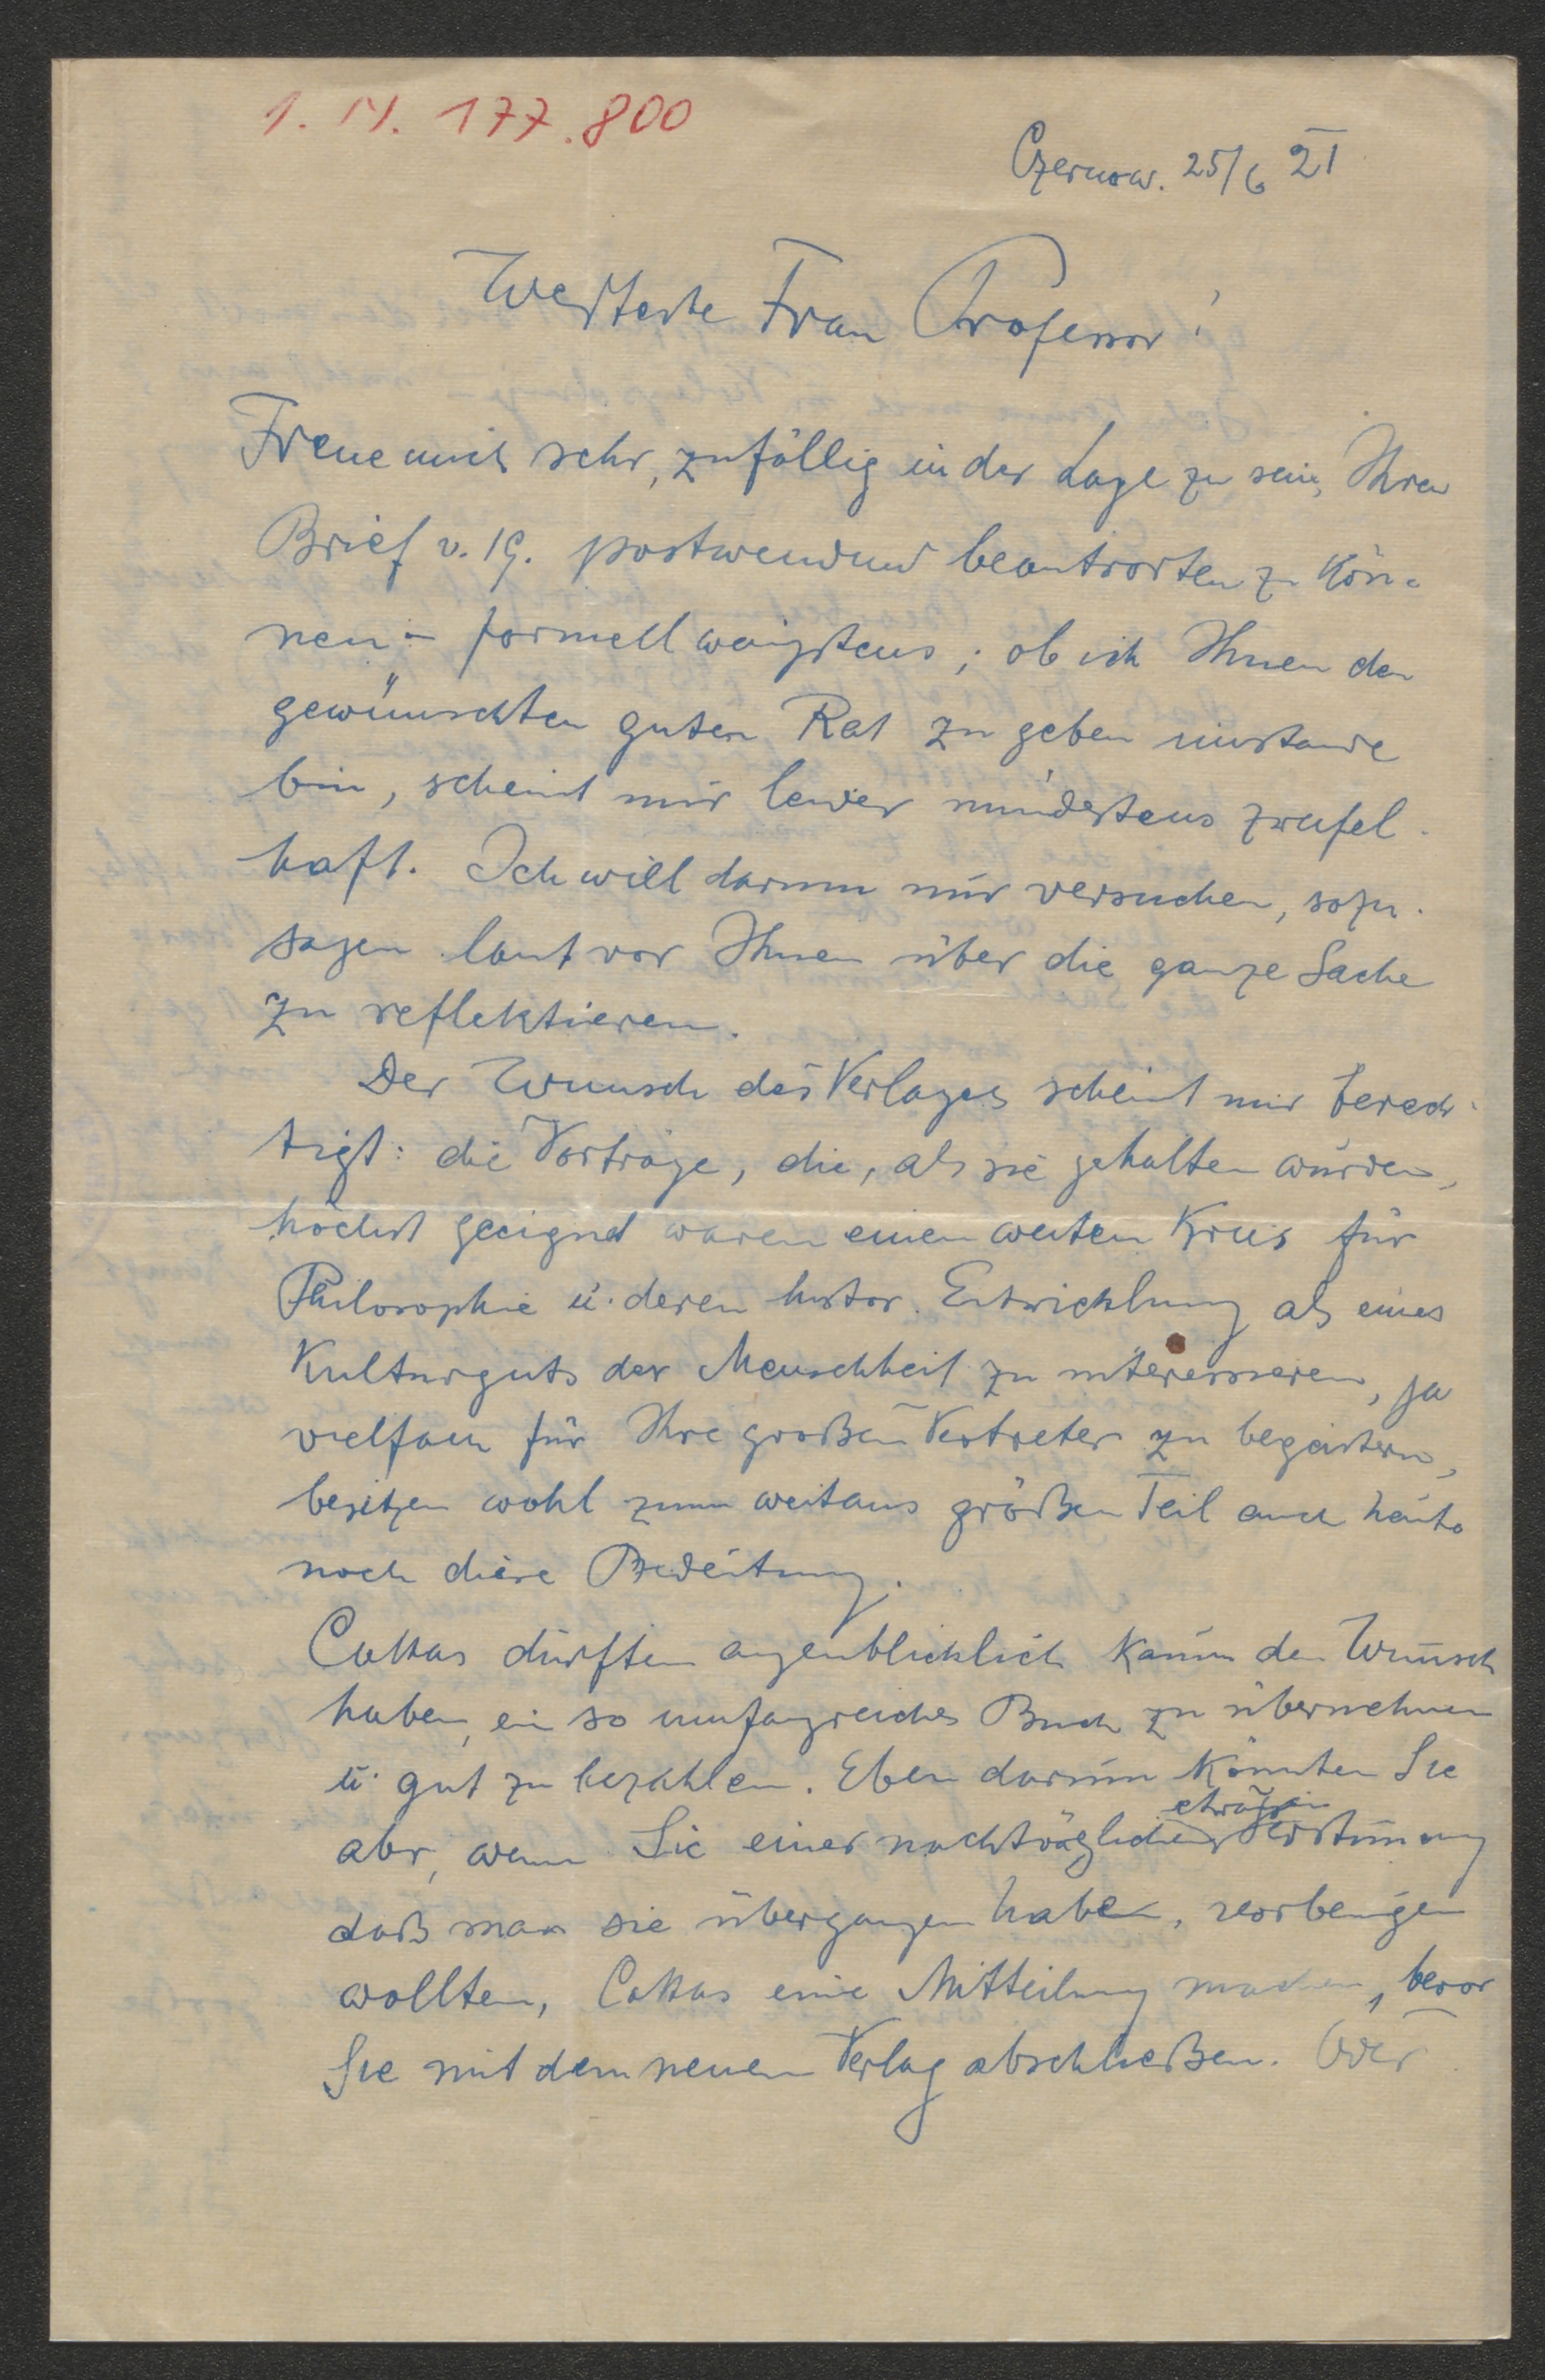 1. N. 177.800
Czernow. 25/6 21
Werteste Frau Professor!
Freue mich sehr, zufällig in der Lage zu sein, Ihren
Brief v. 19. postwendend beantworten zu kön-
nen - formell wenigstens; ob ich Ihnen den
gewünschten guten Rat zu geben imstande
bin, scheint mir leider mindestens zweifel-
haft. Ich will darum nur versuchen, sozu-
sagen laut vor Ihnen über die ganze Sache
zu reflektieren.
Der Wunsch des Verlages scheint mir berech-
tigt: die Vorträge, die, als sie gehalten wurden,
höchst geeignet waren einen weiten Kreis für
Philosophie u. deren histor. Entwicklung als eines
Kulturguts der Menschheit zu interessieren, ja
vielfach für Ihre großen Vertreter zu begeistern,
besitzen wohl zum weitaus größten Teil auch heute
noch diese Bedeutung.
Cottas dürften augenblicklich kaum den Wunsch
haben, ein so umfangreiches Buch zu übernehmen
u. gut zu bezahlen. Eben darum könnten Sie
etwaigen
aber, wenn Sie einer nachträglichen Verstimmung
daß man sie übergangen habe, vorbeugen
wollten, Cottas eine Mitteilung machen, bevor
Sie mit dem neuen Verlag abschließen. Oder